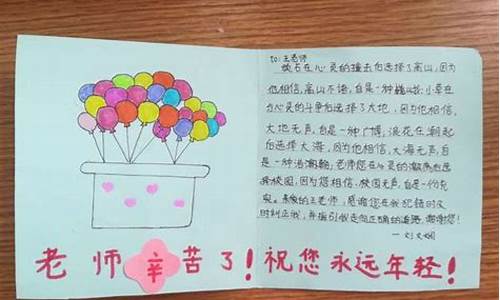 to:王老师
顽石在心灵的撞击后选择了高山,因为
他相信,高山不语,自是一种巍峨;小草在
与心灵的斗争后选择了大地,因为他相信,
大地无声,自是一种广博;浪花在潮起
后选择大海,因为他相信,大海无声,自
是一种浩瀚;老师您在心灵的潮落后选
择校园,因为您相信,校园无声,自是一份充
实。亲爱的王老师,感谢您在我犯错时及
时纠正我,并指引我走向正确的道路,谢谢您!
老师辛苦了!祝您永远年轻!